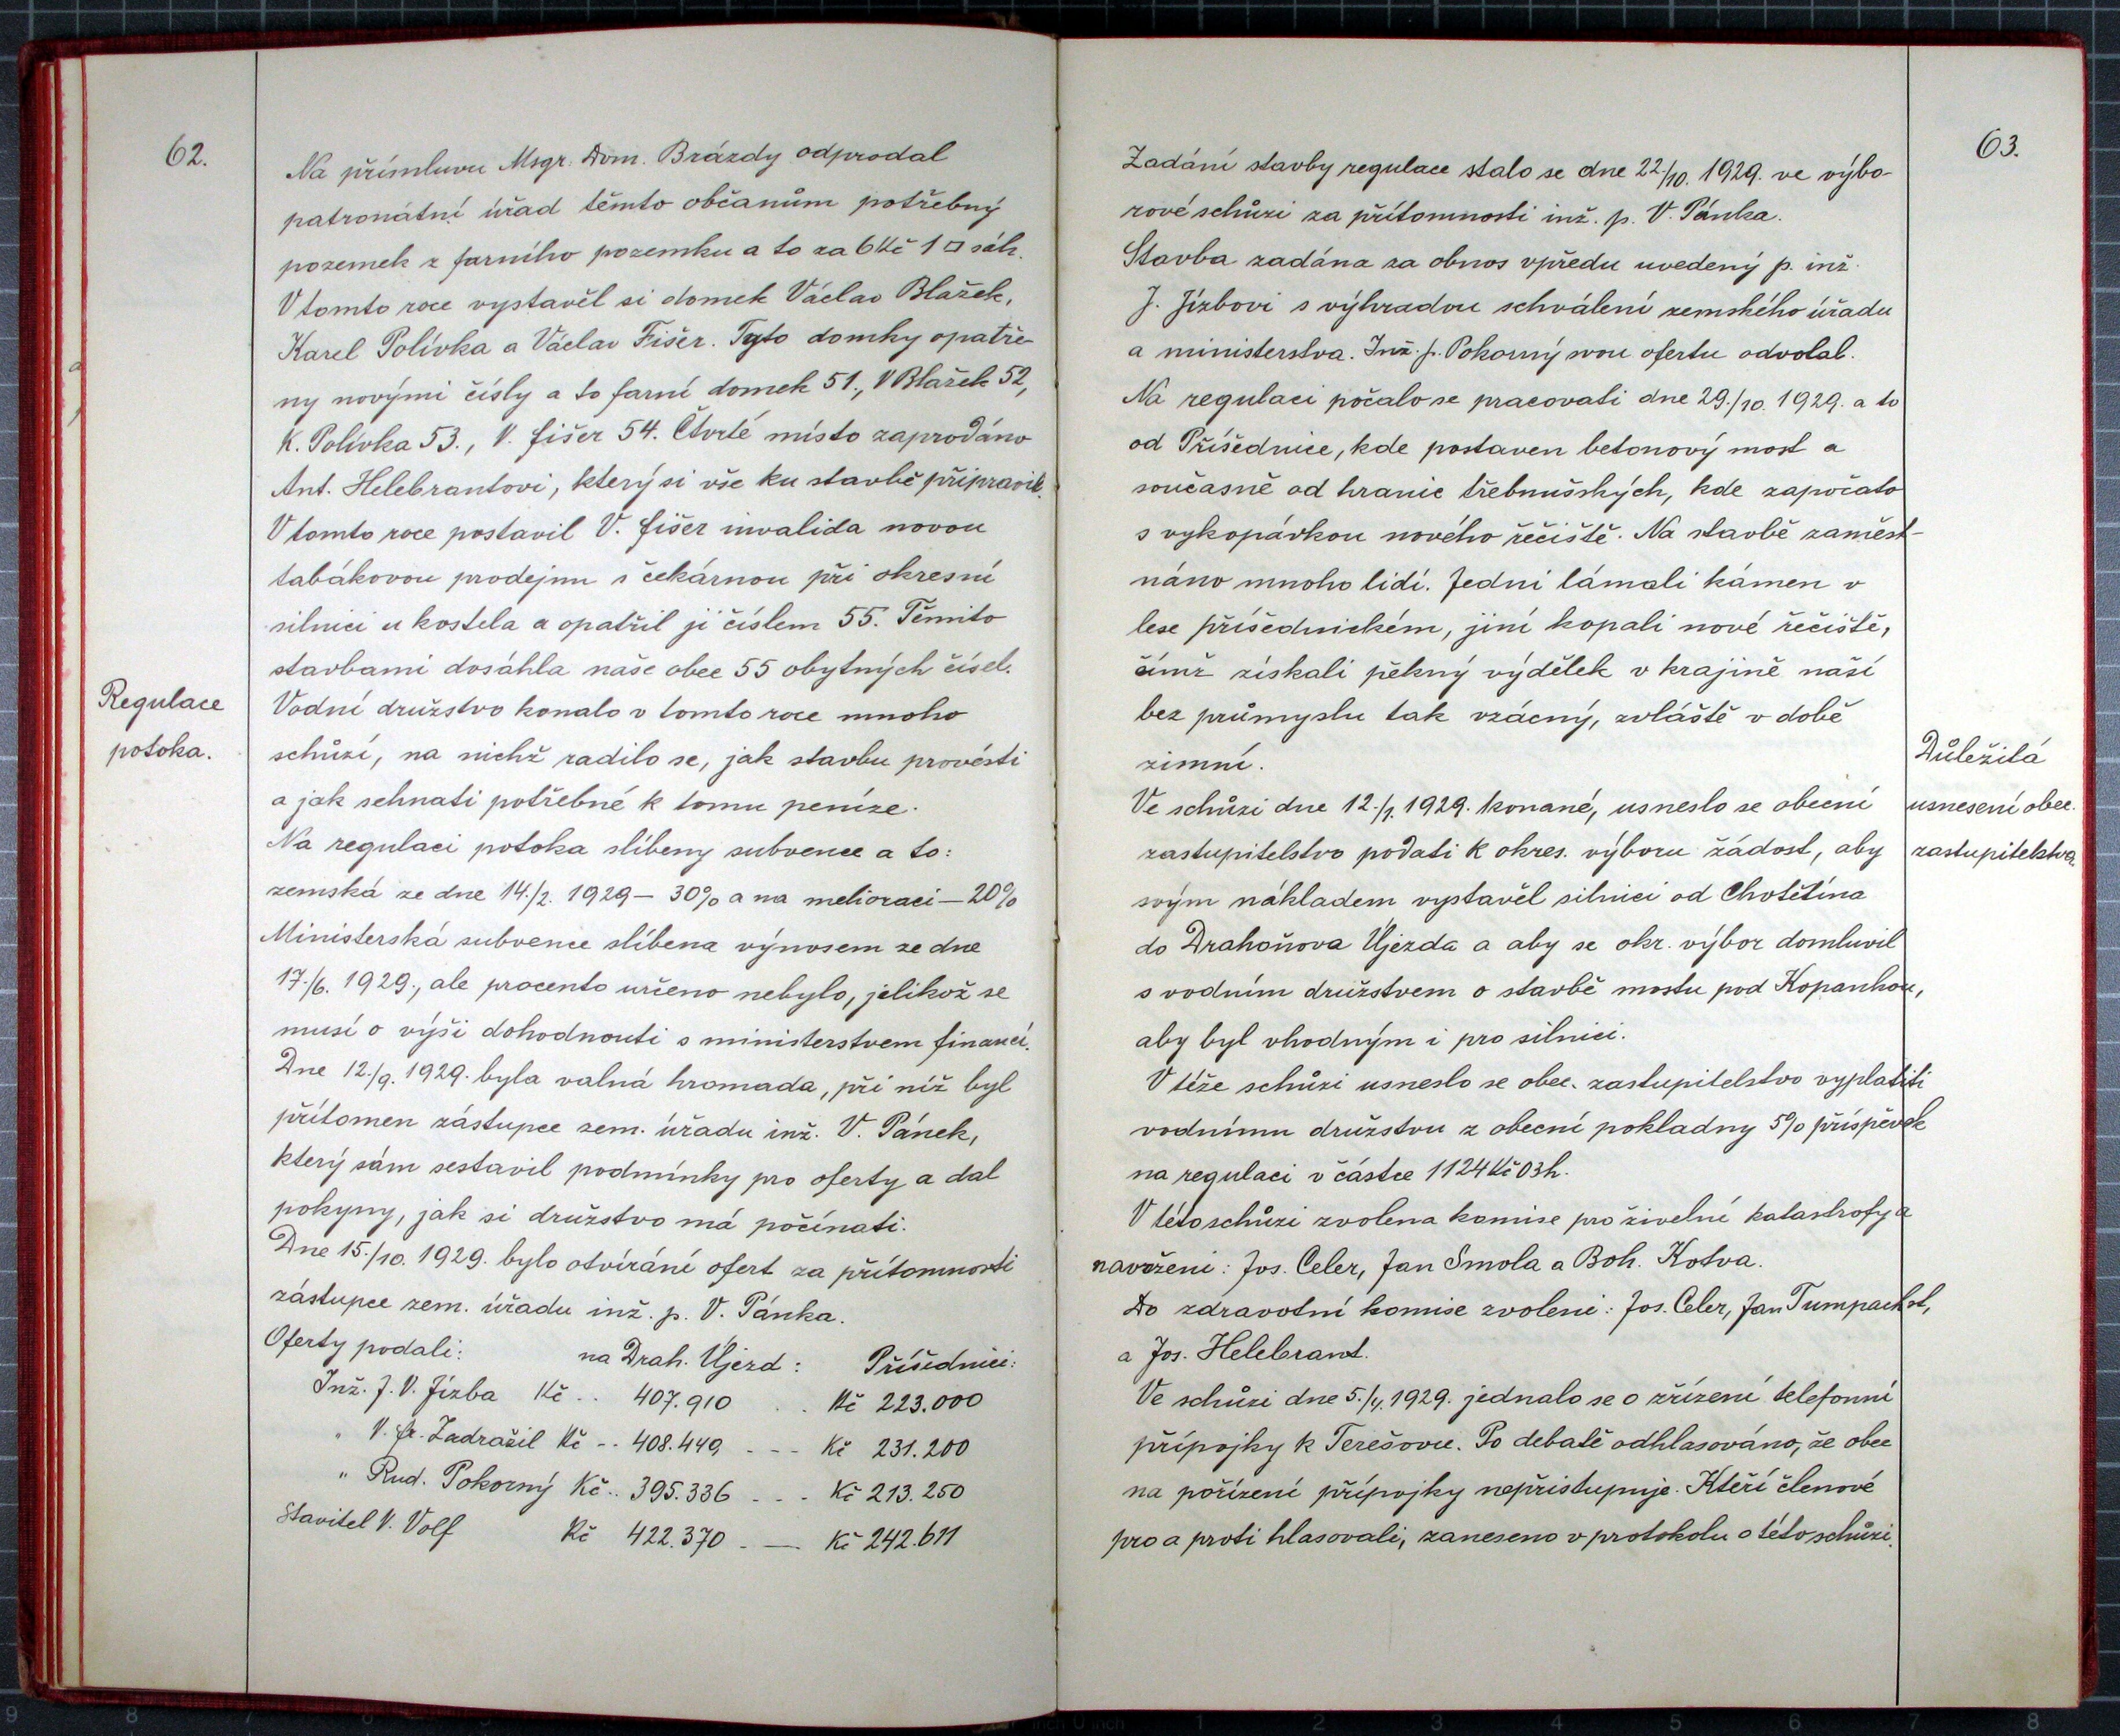 62.
Na přímluvu Msgr. Dom. Brázdy odprodal
patronátní úřad těmto občanům potřebný
pozemek z farního pozemku a to za 6 Kč 1 □ sáh.
V tomto roce vystavěl si domek Václav Blažek,
Karel Polívka a Václav Fišer. Tyto domky opatře-
ny novými čísly a to farní domek 51., V Blažek 52,
K. Polívka 53., V. Fišer 54. Čtvrté místo zaprodáno
Ant. Helebrantovi, který si vše ku stavbě připravil.
V tomto roce postavil V. Fišer invalida novou
tabákovou prodejnu s čekárnou při okresní
silnici u kostela a opatřil ji číslem 55. Těmito
stavbami dosáhla naše obec 55 obytných čísel.
Regulace
potoka.
Vodní družstvo konalo v tomto roce mnoho
schůzí, na nichž radilo se, jak stavbu provésti
a jak sehnati potřebné k tomu peníze.
Na regulaci potoka slíbeny subvence a to:
zemská ze dne 14./2. 1929 – 30% a na melioraci – 20%
Ministerská subvence slíbena výnosem ze dne
17./6. 1929., ale procento určeno nebylo, jelikož se
musí o výši dohodnouti s ministerstvem financí.
Dne 12./9. 1929. byla valná hromada, při níž byl
přítomen zástupce zem. úřadu inž. V. Pánek,
který sám sestavil podmínky pro oferty a dal
pokyny, jak si družstvo má počínati.
Dne 15./10. 1929. bylo otvírání ofert za přítomnosti
zástupce zem. úřadu inž. p. V. Pánka.
Oferty podali: na Drah. Újezd: Příšednici:
Inž. J. V. Jízba Kč .. 407.910 . . Kč 223.000
" V. Fr. Zadražil Kč -- 408.449 --- Kč 231.200
" Rud. Pokorný Kč .. 395.336 - - - Kč 213.250
Stavitel V. Volf Kč 422.370 - — Kč 242.611
63.
Zadání stavby regulace stalo se dne 22./10. 1929. ve výbo-
rové schůzi za přítomnosti inž. p. V. Pánka.
Stavba zadána za obnos vpředu uvedený p. inž.
J. Jízbovi s výhradou schválení zemského úřadu
a ministerstva. Inž. p. Pokorný svou ofertu odvolal.
Na regulaci počalo se pracovati dne 29./10. 1929. a to
od Příšednice, kde postaven betonový most a
současně od hranic třebnušských, kde započato
s vykopávkou nového řečiště. Na stavbě zaměst-
náno mnoho lidí. Jedni lámali kámen v
lese příšednickém, jiní kopali nové řečiště,
čímž získali pěkný výdělek v krajině naší
bez průmyslu tak vzácný, zvláště v době
zimní.
Důležitá
usnesení obec.
zastupitelstva
Ve schůzi dne 12./1. 1929. konané, usneslo se obecní
zastupitelstvo podati k okres. výboru žádost, aby
svým nákladem vystavěl silnici od Chotětína
do Drahoňova Újezda a aby se okr. výbor domluvil
s vodním družstvem o stavbě mostu pod Kopanhou,
aby byl vhodným i pro silnici.
V téže schůzi usneslo se obec. zastupitelstvo vyplatiti
vodnímu družstvu z obecní pokladny 5% příspěvek
na regulaci v částce 1124 Kč 03 h.
V této schůzi zvolena komise pro živelní katastrofy a
navrženi: Jos. Celer, Jan Smola a Boh. Kotva.
Do zdravotní komise zvoleni: Jos. Celer, Jan Tumpach st,
a Jos. Helebrant.
Ve schůzi dne 5./4. 1929. jednalo se o zřízení telefonní
přípojky k Terešovu. Po debatě odhlasováno, že obec
na pořízení přípojky nepřistupuje. Kteří členové
pro a proti hlasovali, zaneseno v protokolu o této schůzi.